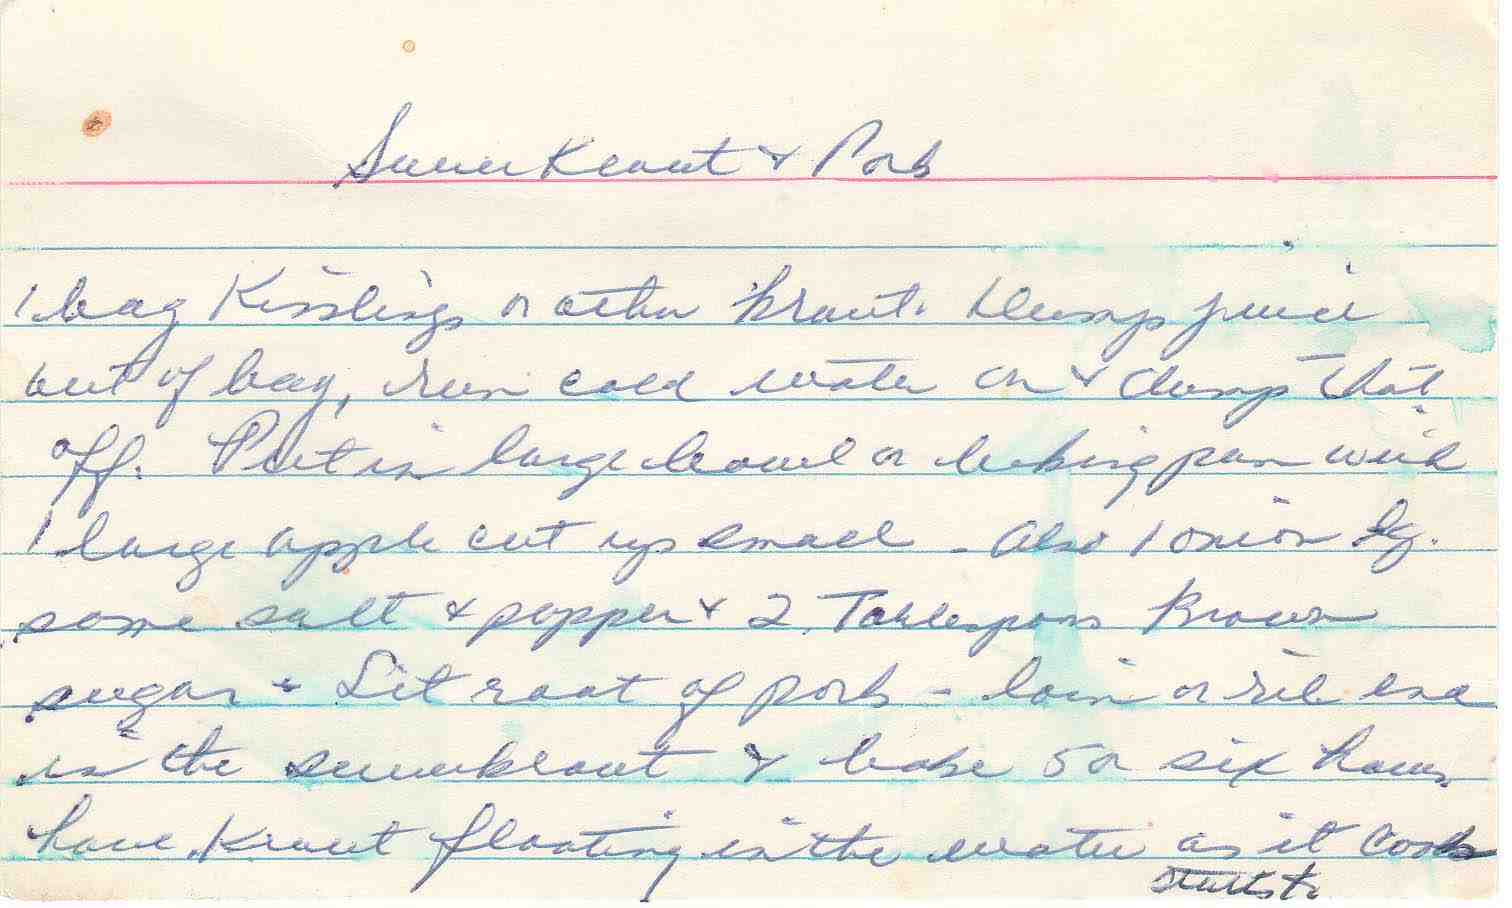 Sauer Kraut & Pork
1 bag Kisslings or other kraut. Dump juice
out of bag, run cold water on & dump that
off. Put in large bowl or baking pan with
1 large apple cut up small - Also 1 onion lg.
some salt & pepper & 2 Tablespoons Brown
sugar & Sit roast of pork - loin or rib end
in the sauerkraut & bake 5 or six hours.
have Kraut floating in the water as it cooks
starts to